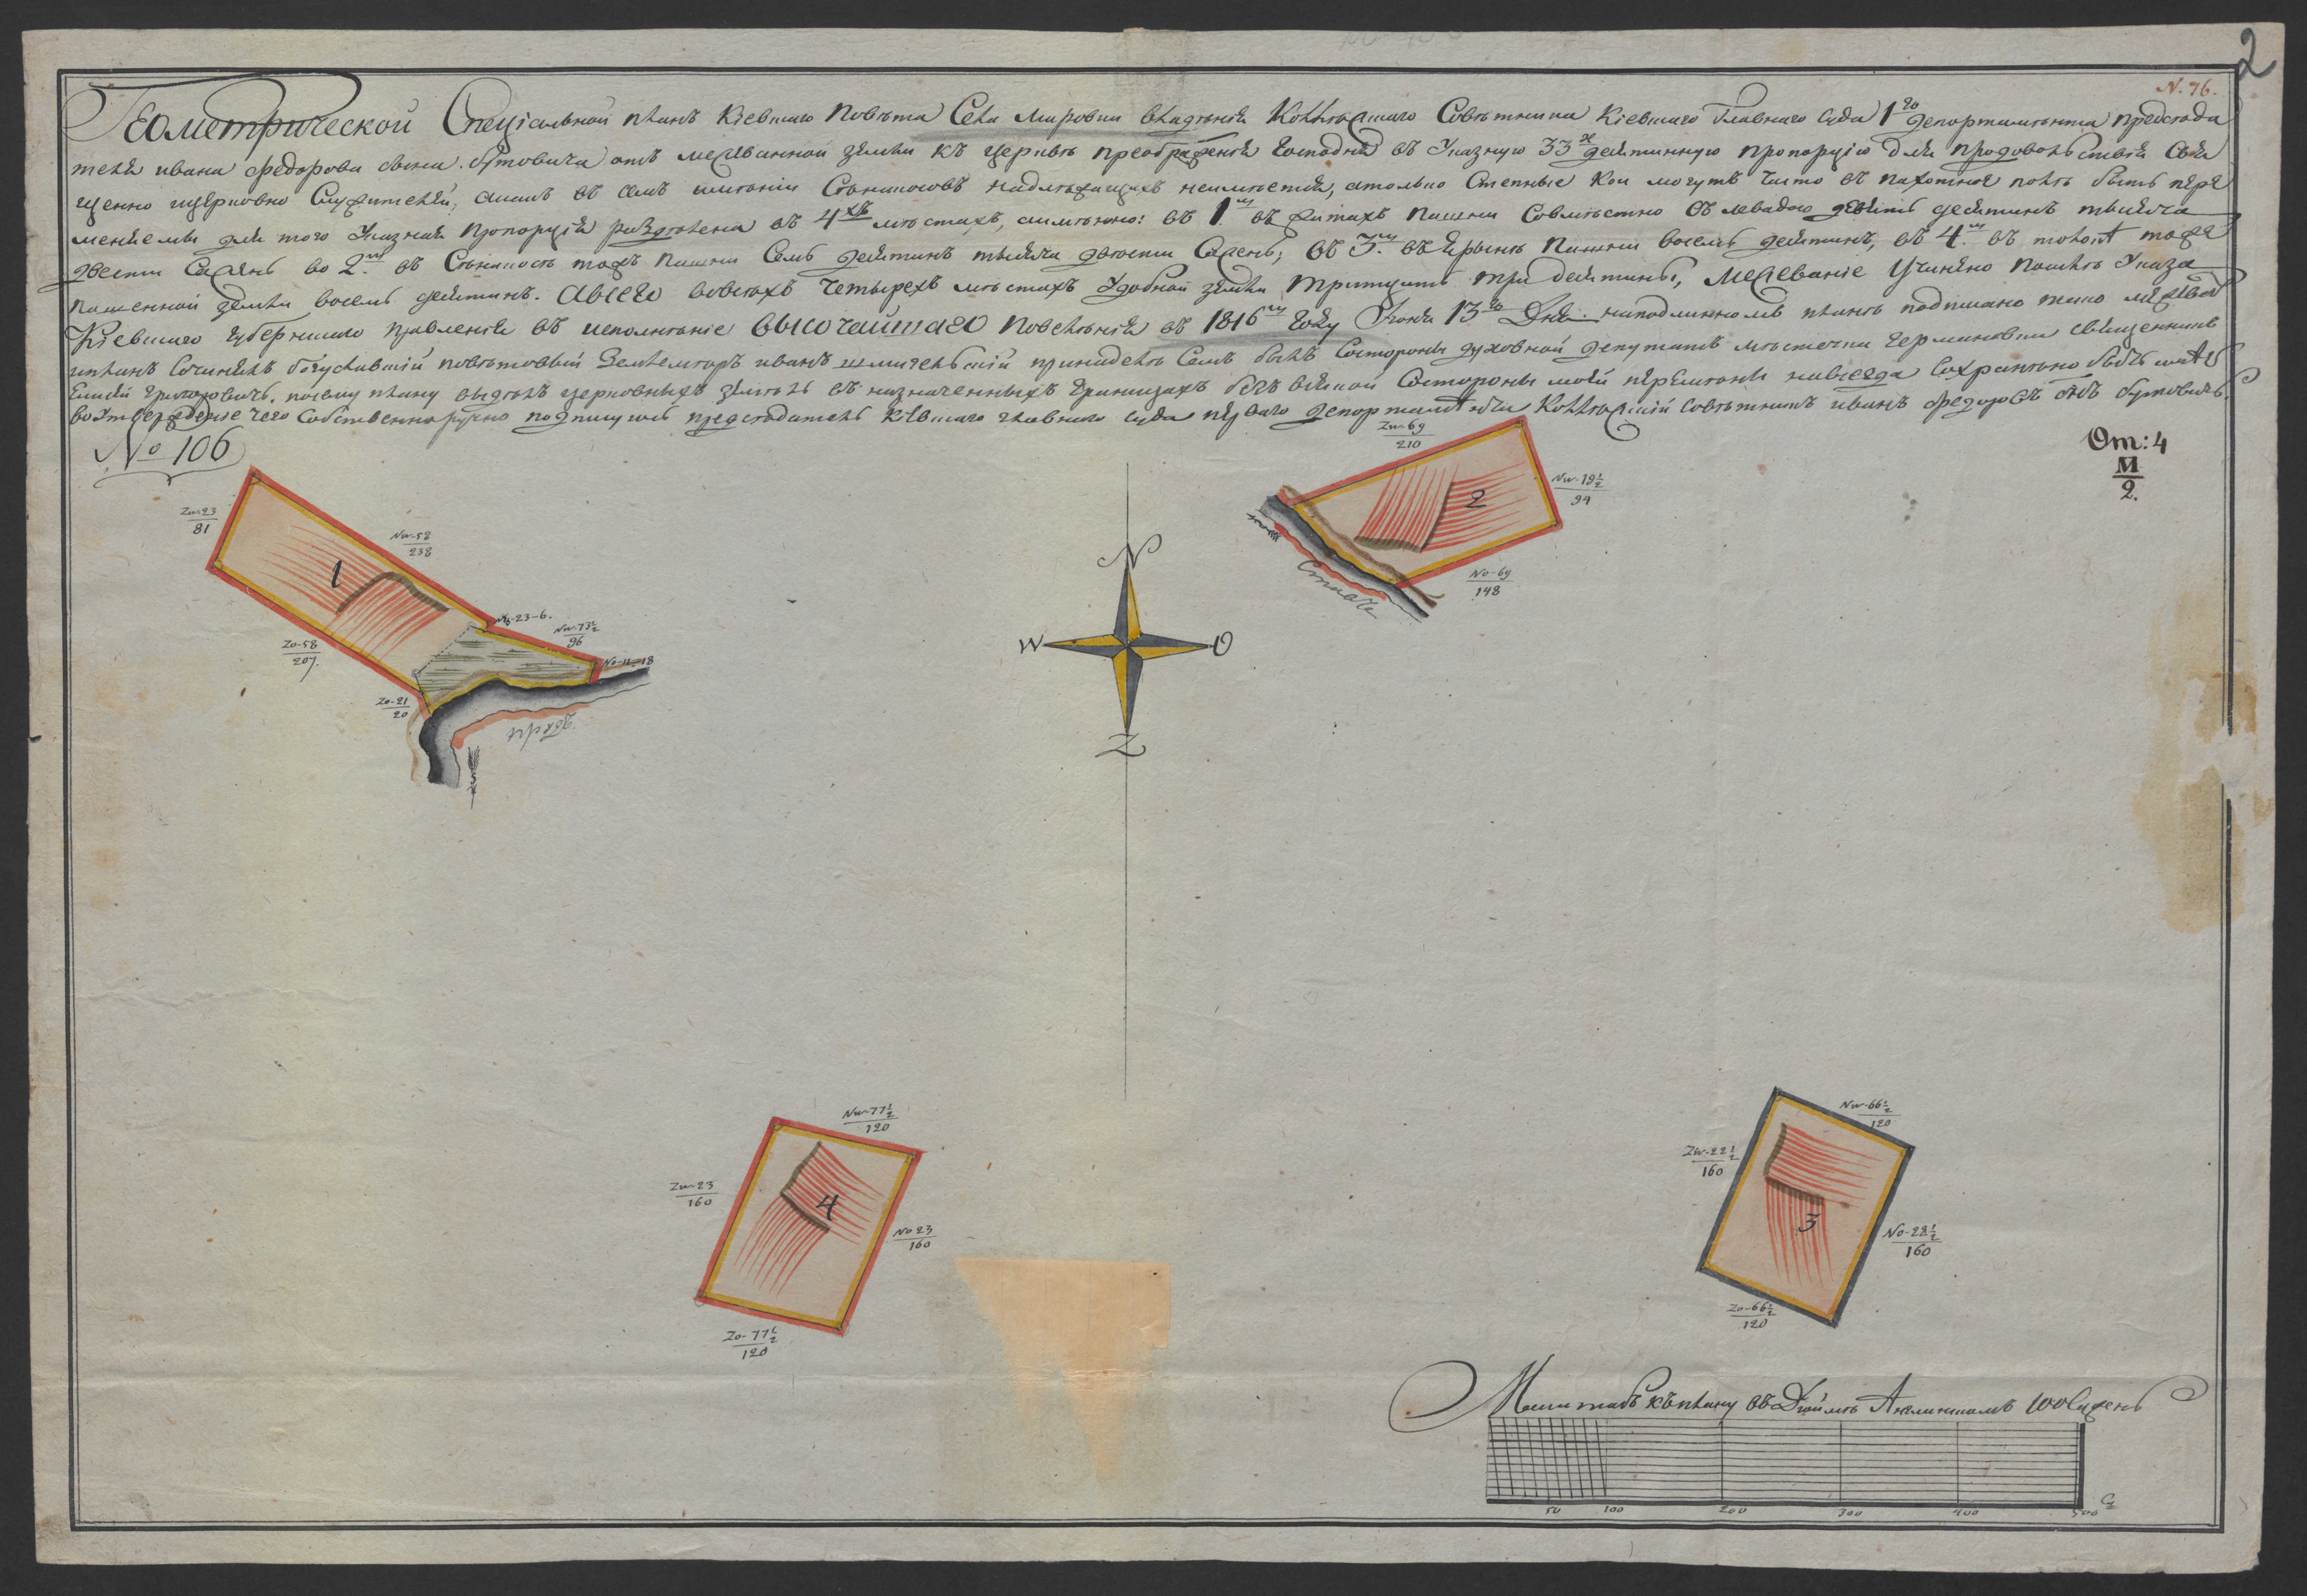 2
N. 76.
Геометрической Спеціальной планъ Кіевшаго повѣта Села Мировки владѣнія Коллѣжшаго Совѣтника Кіевшаго Главнаго Суда 1го департамѣнта председа
теля ивана федорова сына Бутовича отъ межованной земли къ церквѣ преображенія Господня въ Указную 33х десятинную пропорцію для продовольствія Свя
щенно ицерковно Служителей, въ семъ имѣніи Сѣнокосовъ надлежащихъ неимѣется, атолько Степные кои могутъ часто въ пахотное полѣ быть пере
менѣемы для того Указная пропорція раздѣлена въ 4хъ мѣстахъ, аимѣнно: въ 1м въ житахъ пашни Совмѣстно съ левадою девять десятинъ тысяча
двести Саженъ во 2м въ Сѣнокосѣ тожъ пашни Семь десятинъ тысяча двѣсти Саженъ; въ 3м въ Ярынѣ пашни восемь десятинъ, въ 4м въ толокѣ тоже
пашенной земли восемь десятинъ. Авсего вовсехъ четырехъ мѣстахъ Удобной земли тритцать три десятины, Межеваніе Учинено посилѣ Указа
Кіевшаго Губерншаго правленія въ исполнѣніе высочайшаго повелѣнія въ 1816м Году Іюня 13го Дня. наподлинномъ планѣ подписано тако межевалъ
ипланъ Сочинялъ богуславшій повѣтовый Землемѣръ иванъ при семъ былъ Состороны духовной депутатъ мѣстечка Германовки священникъ
Григоровичъ, почему плану видѣлъ церковныхъ земель въ назначенныхъ Границахъ безъ всякой Состороны моей перемѣны навсегда Сохранѣно быть имѣетъ
во Утверждѣніе чего Собственноручно подпишусь председатель Кіевшаго главнаго суда перваго департамѣнта Коллѣжшій Совѣтникъ иванъ федоровъ сынъ бутовичъ.
No 106
От: 4
М
2.
Zw-23
81
Nw-58
238
1
No-23-6.
Nw-73½
96
No-11-18
Zo-58
207.
Zo-21
20
Zw-69
210
Nw-19½
94
2
No-69
148
N
W
O
Z
Nw-77½
120
Zw-23
160
4
No 23
160
Zo-77½
120
Nw-66½
120
Zw-22½
160
3
No-22½
160
Zo-66½
120
Маштабъ къплану въ Дюймѣ Англиншомъ 100 Саженъ
50 100 200 300 400 500 С